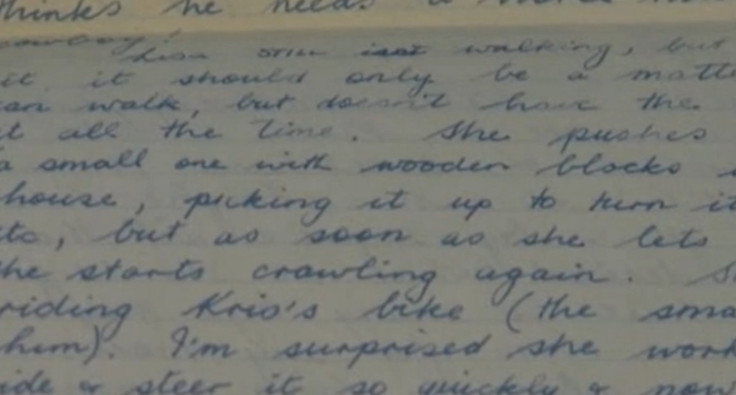 thinks he needs a
cowboy!
Lisa still isn't walking, but
it it should only be a matt
can walk, but doesn't have the
it all the time. She pushes
a small one with wooden blocks
house, picking it up to turn it
etc, but as soon as she lets
she starts crawling again. S
riding Kris's bike (the sma
him). I'm surprised she work
ide & steer it so quickly & now